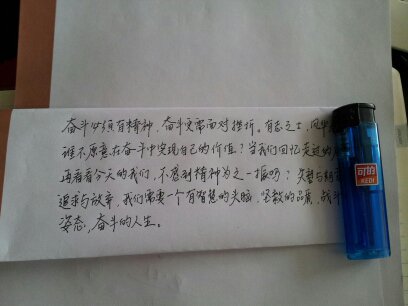 奋斗必须有精神,奋斗更需面对挫折。有志之士,风华
谁不愿意在奋斗中实现自己的价值?当我们回忆走过的
再看看今天的我们,不感到精神为之一振吗?失望与
追求与放弃,我们需要一个有智慧的头脑,坚毅的品质,战斗
姿态,奋斗的人生。
可的
KEDI